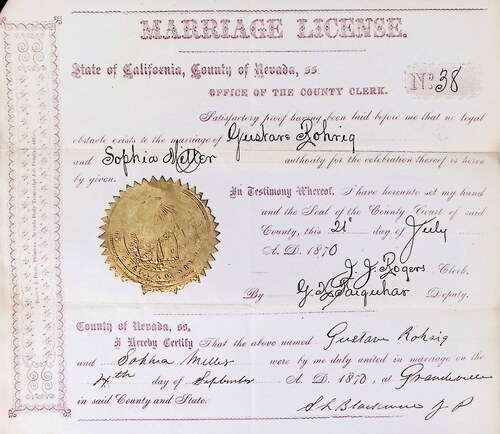 MARRIAGE LICENSE.
State of California, County of Nevada, ss.
OFFICE OF THE COUNTY CLERK.
No. 38
Satisfactory proof having been laid before me that no legal
obstacle exists to the marriage of Gustave Rohrig
and Sophia Miller authority for the celebration thereof is hereby given.
In Testimony Whereof, I have hereunto set my hand
and the Seal of the County Court of said
County, this 21 day of July
A. D. 1870
J. J. Rogers Clerk.
By G. K. Farquhar Deputy.
County of Nevada, ss.
I Hereby Certify That the above named Gustave Rohrig
and Sophia Miller were by me duly united in marriage on the
4th day of September A. D. 1870, at Graniteville
in said County and State.
J P